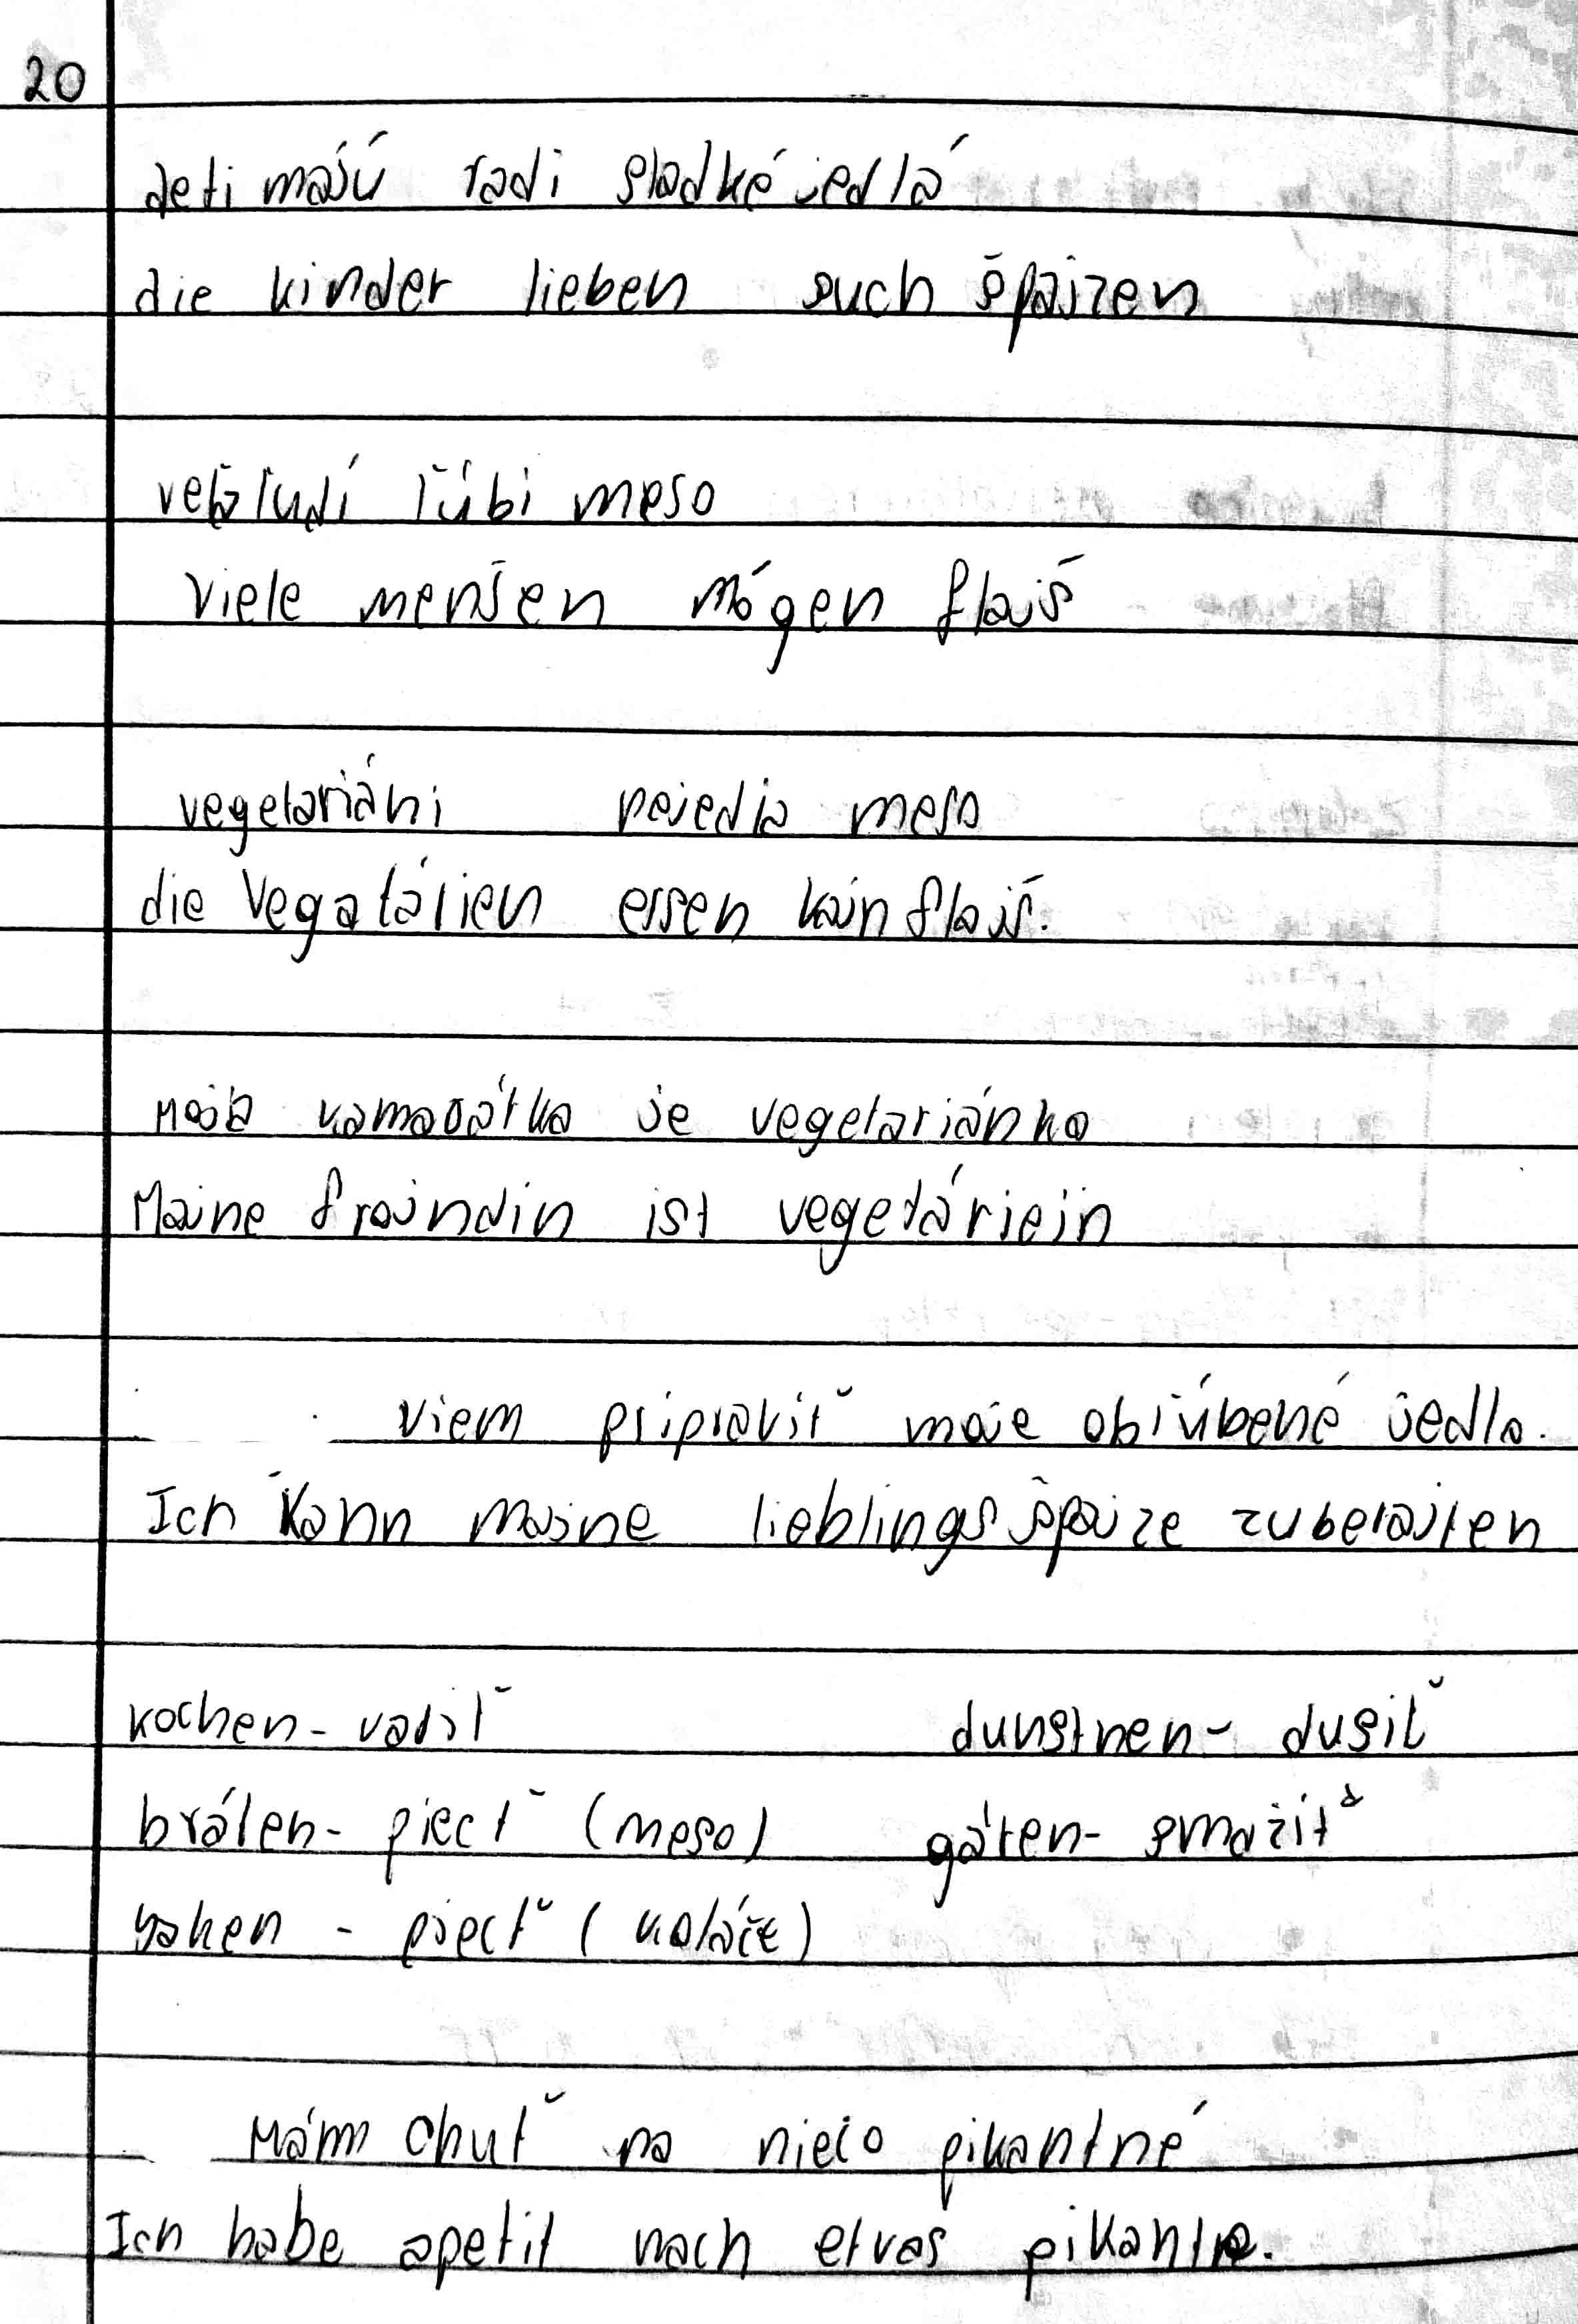 20
deti majú radi sladké jedlá
die kinder lieben such špajzen
veľa ľudí ľúbi meso
Viele menšen mógen flajš
vegetariáni nejedia meso
die Vegatárien essen kajn flajš.
Moja kamarátka je vegetariánka
Majne frojndin ist vegetáriein
viem pripraviť moje obľúbené jedlo.
Ich kann majne lieblings špajze zuberajten
kochen - variť dunstnen - dusiť
bráten - piecť (meso) gáren - smažiť
baken - piecť (koláče)
Mám chuť na niečo pikantné
Ich habe apetit nach etvas pikante.